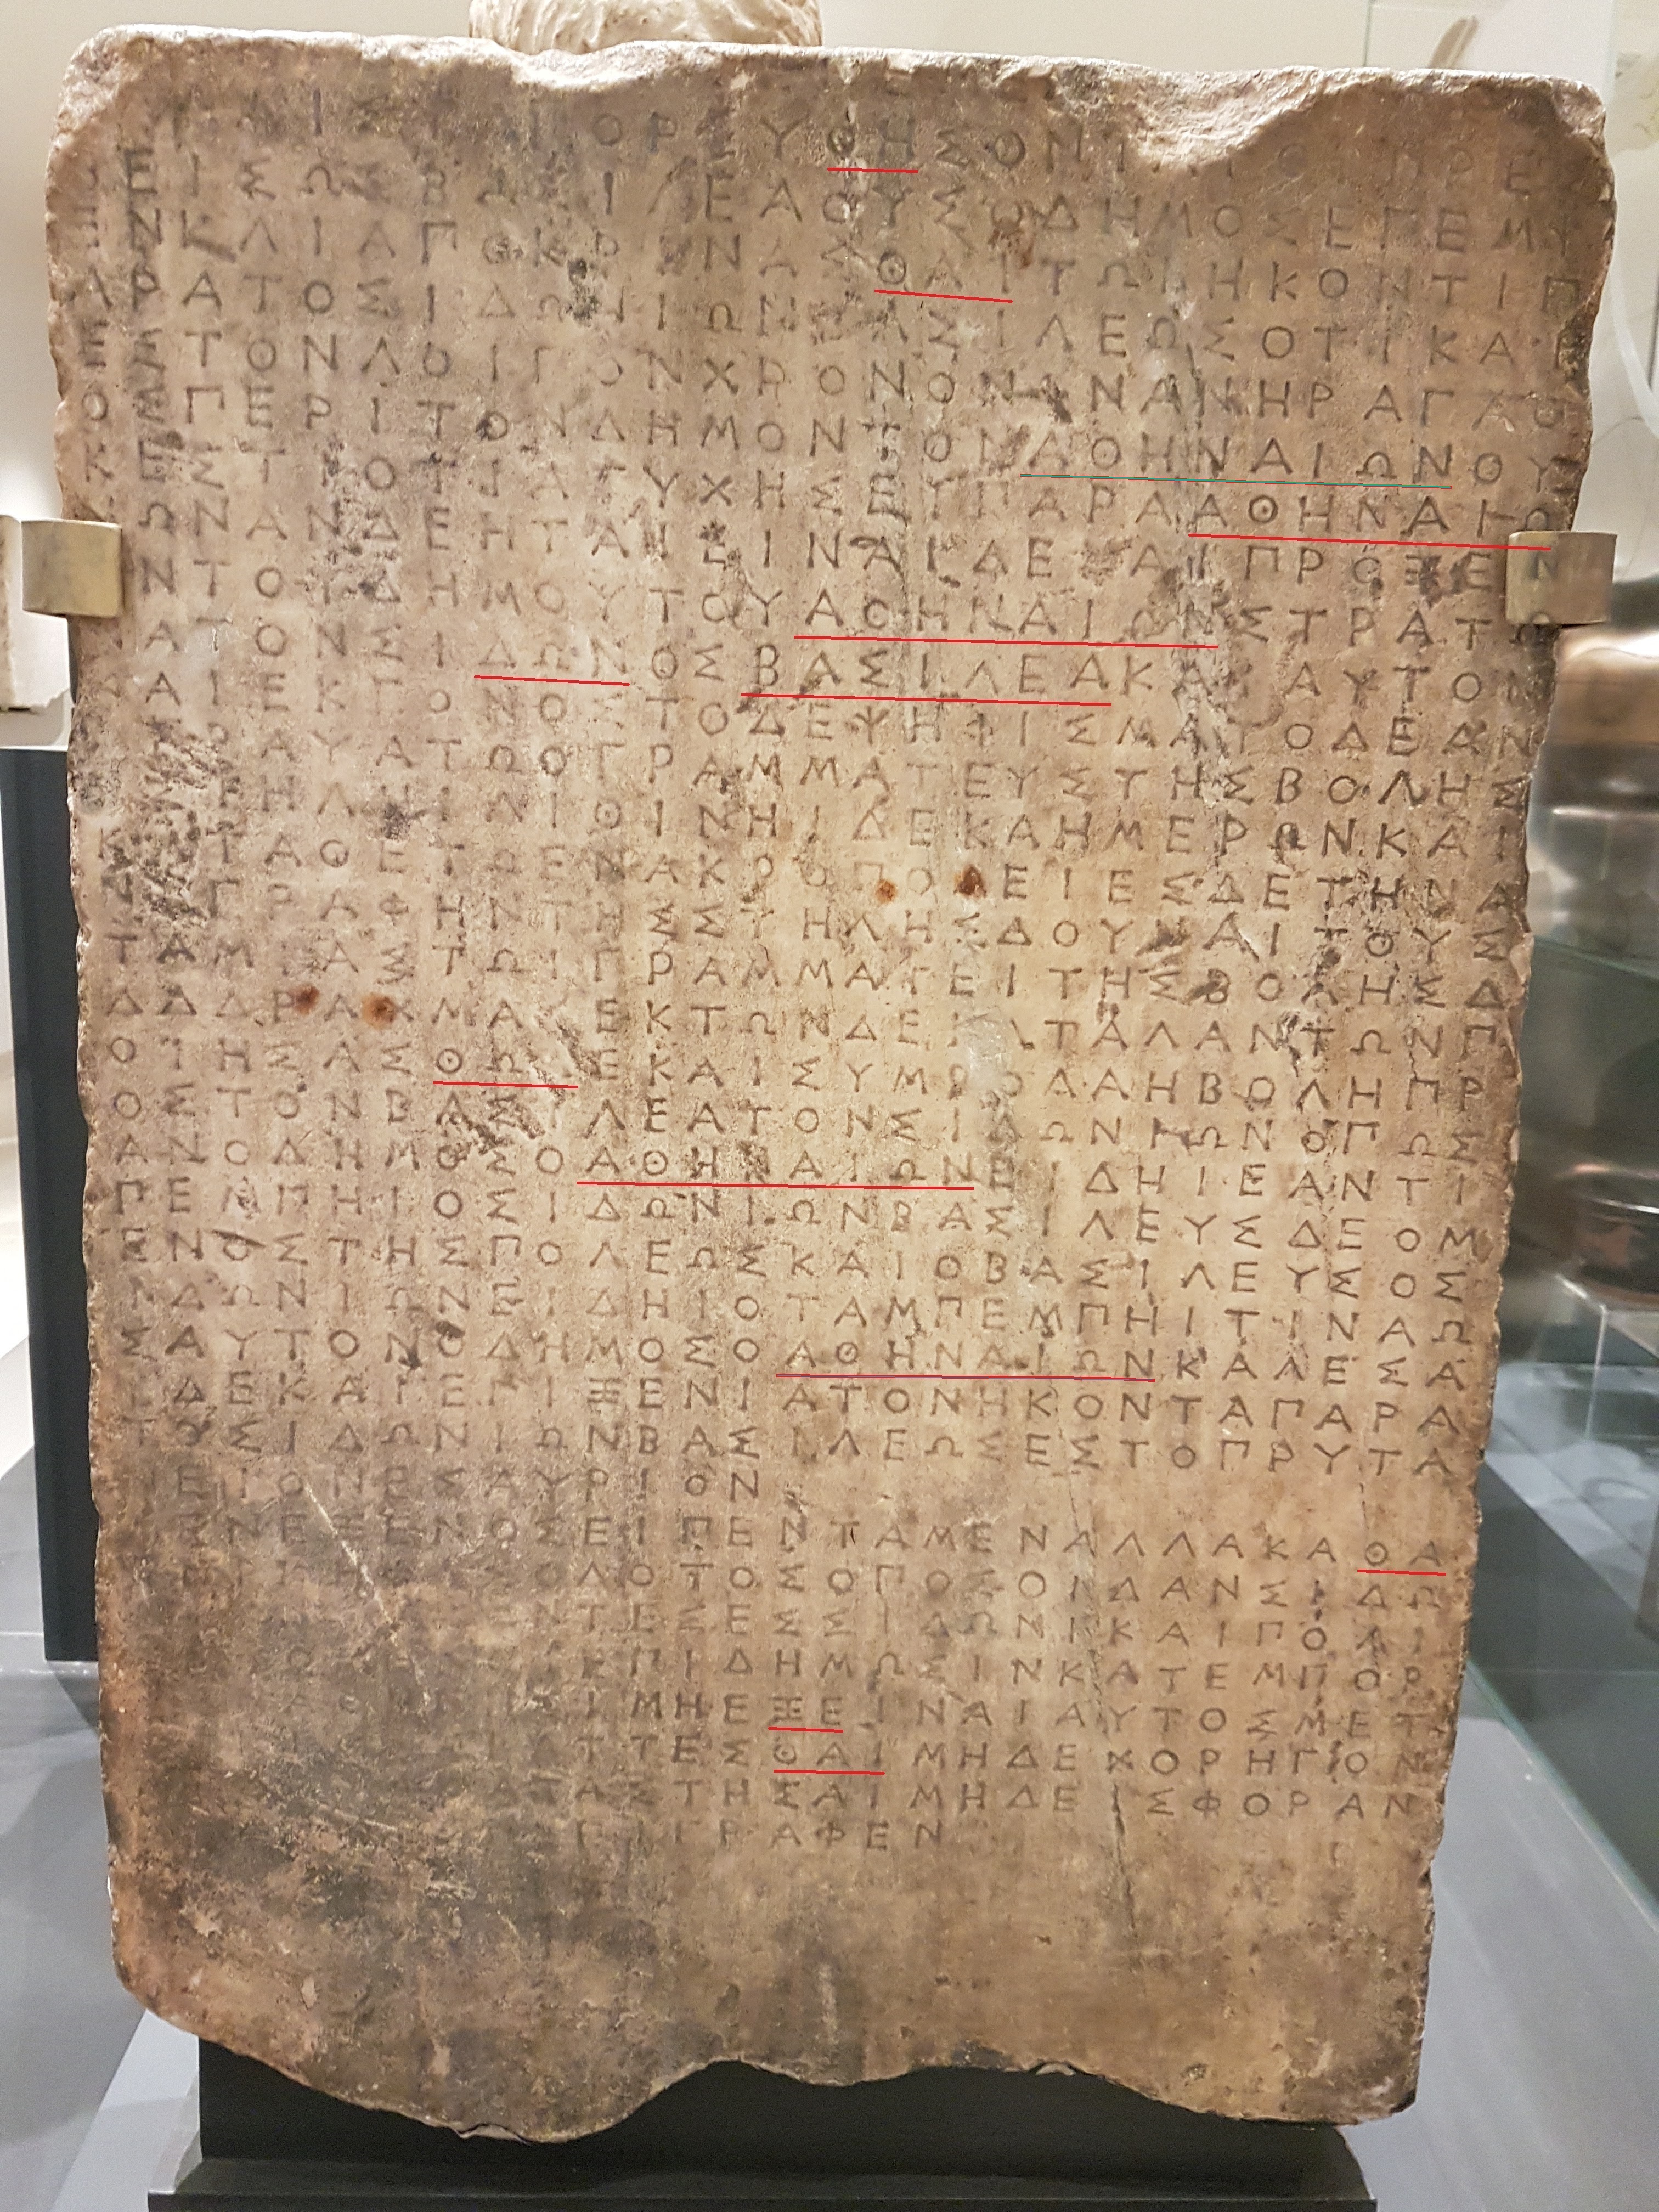 ΛΛΙΣΤΑΠΟΡΕΥΘΗΣΟΝΤΑΙΟΙΠΡΕΣ
ΒΕΙΣΩΣΒΑΣΙΛΕΑΟΥΣΟΔΗΜΟΣΕΠΕΜΨ
ΕΝΚΑΙΑΠΟΚΡΙΝΑΣΘΑΙΤΩΙΗΚΟΝΤΙΠ
ΑΡΑΤΟΣΙΔΩΝΙΩΝΒΑΣΙΛΕΩΣΟΤΙΚΑΙ
ΕΣΤΟΝΛΟΙΠΟΝΧΡΟΝΟΝΩΝΑΝΗΡΑΓΑΘ
ΟΣΠΕΡΙΤΟΝΔΗΜΟΝΤΟΝΑΘΗΝΑΙΩΝΟΥ
ΚΕΣΤΙΟΤΙΑΤΥΧΗΣΕΙΠΑΡΑΑΘΗΝΑΙΩ
ΝΩΝΑΝΔΕΗΤΑΙΕΙΝΑΙΔΕΚΑΙΠΡΟΞΕΝ
ΟΝΤΟΥΔΗΜΟΥΤΟΥΑΘΗΝΑΙΩΝΣΤΡΑΤΩ
ΝΑΤΟΝΣΙΔΩΝΟΣΒΑΣΙΛΕΑΚΑΙΑΥΤΟΝ
ΚΑΙΕΚΓΟΝΟΣΤΟΔΕΨΗΦΙΣΜΑΤΟΔΕΑΝ
ΑΓΡΑΨΑΤΩΟΓΡΑΜΜΑΤΕΥΣΤΗΣΒΟΛΗΣ
ΕΣΤΗΛΗΙΛΙΘΙΝΗΙΔΕΚΑΗΜΕΡΩΝΚΑΙ
ΚΑΤΑΘΕΤΩΕΝΑΚΡΟΠΟΛΕΙΕΣΔΕΤΗΝΑ
ΝΑΓΡΑΦΗΝΤΗΣΣΤΗΛΗΣΔΟΥΝΑΙΤΟΥΣ
ΤΑΜΙΑΣΤΩΙΓΡΑΜΜΑΤΕΙΤΗΣΒΟΛΗΣΔ
ΔΔΔΡΑΧΜΑΣΕΚΤΩΝΔΕΚΑΤΑΛΑΝΤΩΝΠ
ΟΙΗΣΑΣΘΩΔΕΚΑΙΣΥΜΒΟΛΑΗΒΟΛΗΠΡ
ΟΣΤΟΝΒΑΣΙΛΕΑΤΟΝΣΙΔΩΝΙΩΝΟΠΩΣ
ΑΝΟΔΗΜΟΣΟΑΘΗΝΑΙΩΝΕΙΔΗΙΕΑΝΤΙ
ΠΕΜΠΗΙΟΣΙΔΩΝΙΩΝΒΑΣΙΛΕΥΣΔΕΟΜ
ΕΝΟΣΤΗΣΠΟΛΕΩΣΚΑΙΟΒΑΣΙΛΕΥΣΟΣ
ΙΔΩΝΙΩΝΕΙΔΗΙΟΤΑΜΠΕΜΠΗΙΤΙΝΑΩ
ΣΑΥΤΟΝΟΔΗΜΟΣΟΑΘΗΝΑΙΩΝΚΑΛΕΣΑ
ΙΔΕΚΑΙΕΠΙΞΕΝΙΑΤΟΝΗΚΟΝΤΑΠΑΡΑ
ΤΟΣΙΔΩΝΙΩΝΒΑΣΙΛΕΩΣΕΣΤΟΠΡΥΤΑ
ΝΕΙΟΝΕΣΑΥΡΙΟΝ
ΜΕΝΕΞΕΝΟΣΕΙΠΕΝΤΑΜΕΝΑΛΛΑΚΑΘΑ
ΠΕΡΚΗΦΙΣΟΔΟΤΟΣΟΠΟΣΟΙΔΑΝΣΙΔΩ
ΝΤΕΣΕΣΣΙΔΩΝΙΚΑΙΠΟΛΙ
ΕΠΙΔΗΜΩΣΙΝΚΑΤΕΜΠΟΡ
ΙΜΗΕΞΕΙΝΑΙΑΥΤΟΣΜΕΤ
ΑΤΤΕΣΘΑΙΜΗΔΕΧΟΡΗΓΟΝ
ΑΤΑΣΤΗΣΑΙΜΗΔΕΙΣΦΟΡΑΝ
ΕΠΙΓΡΑΦΕΝ